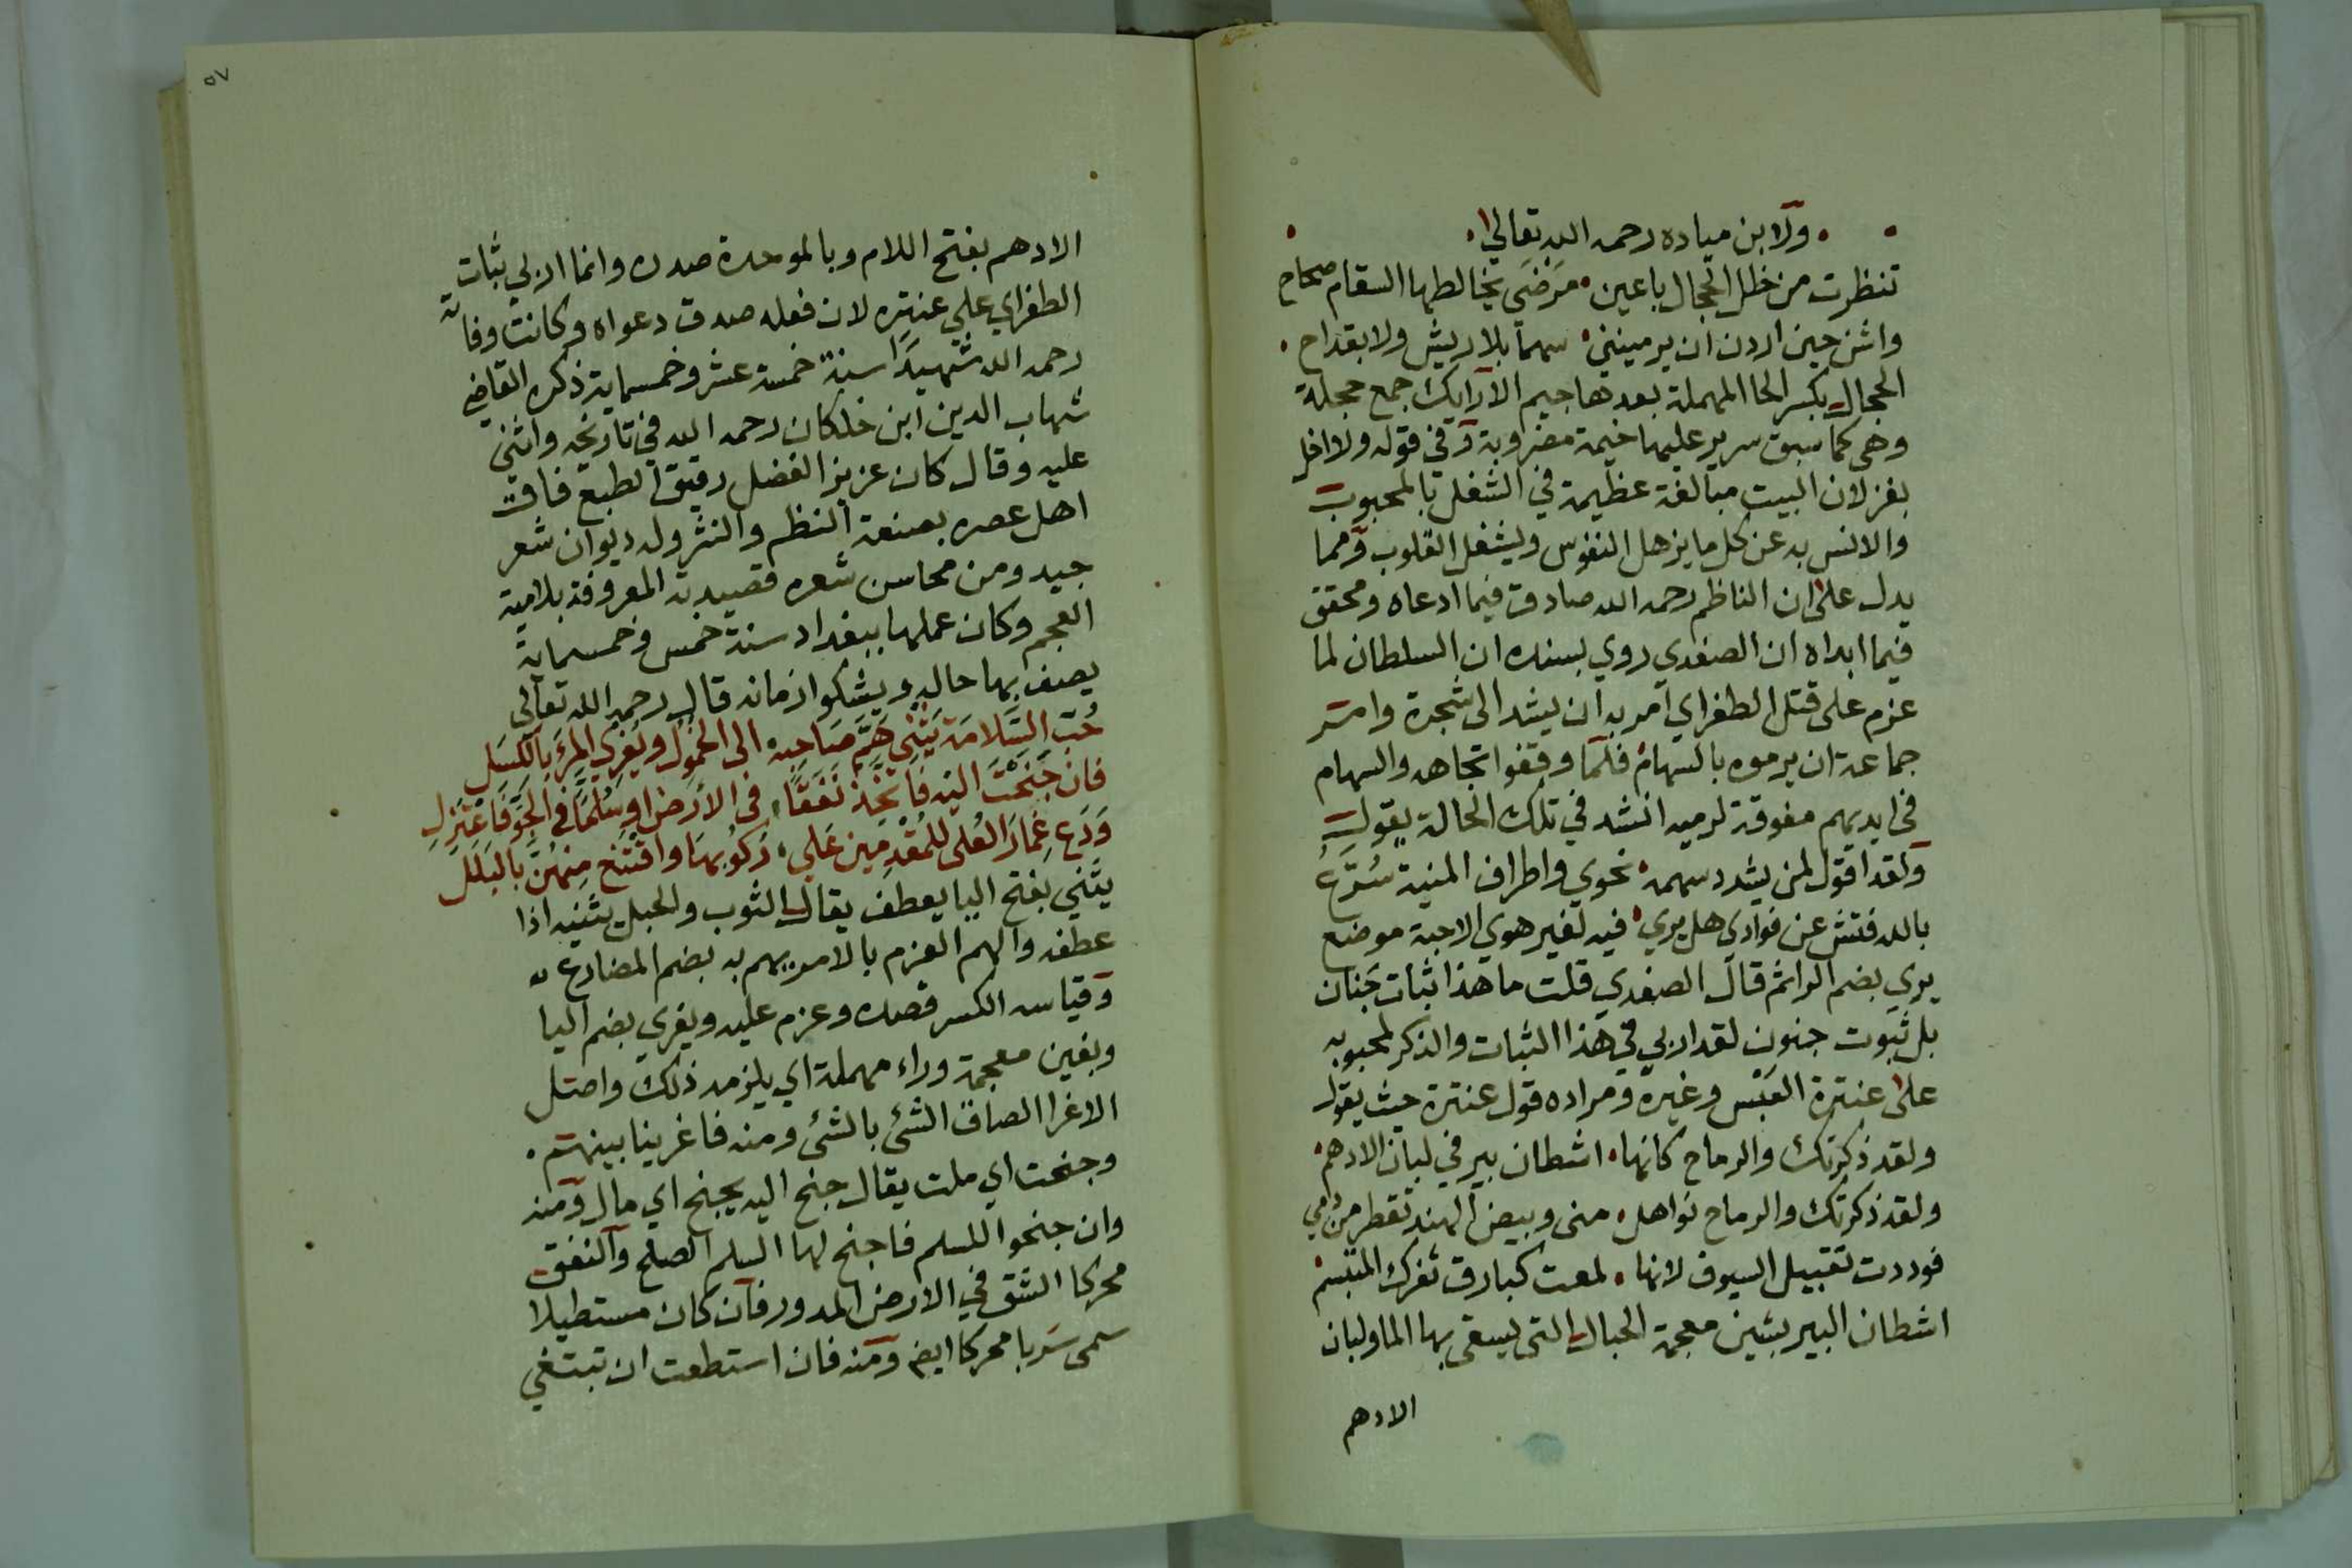 ولابن ميادة رحمه الله تعالى
تنظرت من خلل الحجال باعين • مَرْضَي يخالطها السقام صحاح
واشن حين اردن ان يرمينني • سهما بلا ريش ولا بقداح •
الحجال بكسر الحا المهملة بعدها جيم الارايك جمع حجلة
وهي كما سبق سرير عليها خيمة مضروبة وفي قوله ولا اخل
بغزلان البيت مبالغة عظيمة في الشغل بالمحبوب
والانس به عن كل ما يزهل النفوس ويشغل القلوب ومما
يدل على ان الناظم رحمه الله صادق فيما ادعاه ومحقق
فيما ابداه ان الصفدي روي بسنده ان السلطان لما
عزم على قتل الطغراي امر به ان يشد الى شجرة وامر
جماعة ان يرموه بالسهام فلما وقفوا تجاهه والسهام
في ايديهم مفوقة لرميه انشد في تلك الحالة يقول
ولقد اقول لمن يسدد سهمه • نحوي واطراف المنية شُرَّعُ
بالله فتش عن فوادي هل يري • فيه لغير هوي الاحبة موضع
يري بضم الرا ثم قال الصفدي قلت ما هذا ثبات جَنان
بل ثبوت جنون لقد اربي في هذا الثبات والذكر لمحبوبه
على عنترة العَبْس وغيره ومراده قول عنترة حيث يقول
ولقد ذكرتك والرماح كانها • اشطان بير في لبان الادهم •
ولقد ذكرتك والرماح نواهل • مني وبيض الهند تقطر من دمي
فوددت تقبيل السيوف لانها • لمعت كبارق ثغرك المتبسم
اشطان البير بشين معجمة الحبال التي يسقى بها الما ولبان
الادهم
٥٧
الادهم بفتح اللام وبالموحدة صدره وانما اربي بثبات
الطغراي علي عنتره لان فعله صدق دعواه وكانت وفاته
رحمه الله شهيدًا سنة خمسة عشر وخمسماية ذكره القاضي
شهاب الدين ابن خلكان رحمه الله في تاريخه واثنى
عليه وقال كان عزيز الفضل رقيق الطبع فاق
اهل عصره بصنعة النظم والنثر وله ديوان شعر
جيد ومن محاسن شعره قصيدته المعروفة بلامية
العجم وكان عملها ببغداد سنة خمس وخمسماية
يصف بها حاله ويشكوا زمانه قال رحمه الله تعالى
حُبّ السَّلَامَة يَثْنِي هَمَّ صَاحِبه • الى الخمول ويُغري المرءَ بالكَسَل
فان جَنَحْتَ اليه فاتخذ نَفَقًا • في الارض او سُلَّمًا في الجوّ فَاعْتَزِل
وَدَع غِمَار العُلى للمُقْدِمِين عَلى • رُكوبها واقتنع مِنهُنَّ بالبَلَل
يثني بفتح اليا يعطف يقال الثوب والحبل يثنيه اذا
عطفه والهم العزم بالامر يهم به بضم المضارع له
وقياسه الكسر قصده وعزم عليه ويغري بضم اليا
وبغين معجمة وراء مهملة اي يلزمه ذلك واصل
الاغرا الصاق الشئ بالشئ ومنه فاغرينا بينهم •
وجنحت اي ملت يقال جنح اليه يجنح اي مال ومنه
وان جنحوا للسلم فاجنح لها السلم الصلح والنفق
محركا الشق في الارض المدور فان كان مستطيلا
سمي سَربا محركا ايض ومنه فان استطعت ان تبتغي